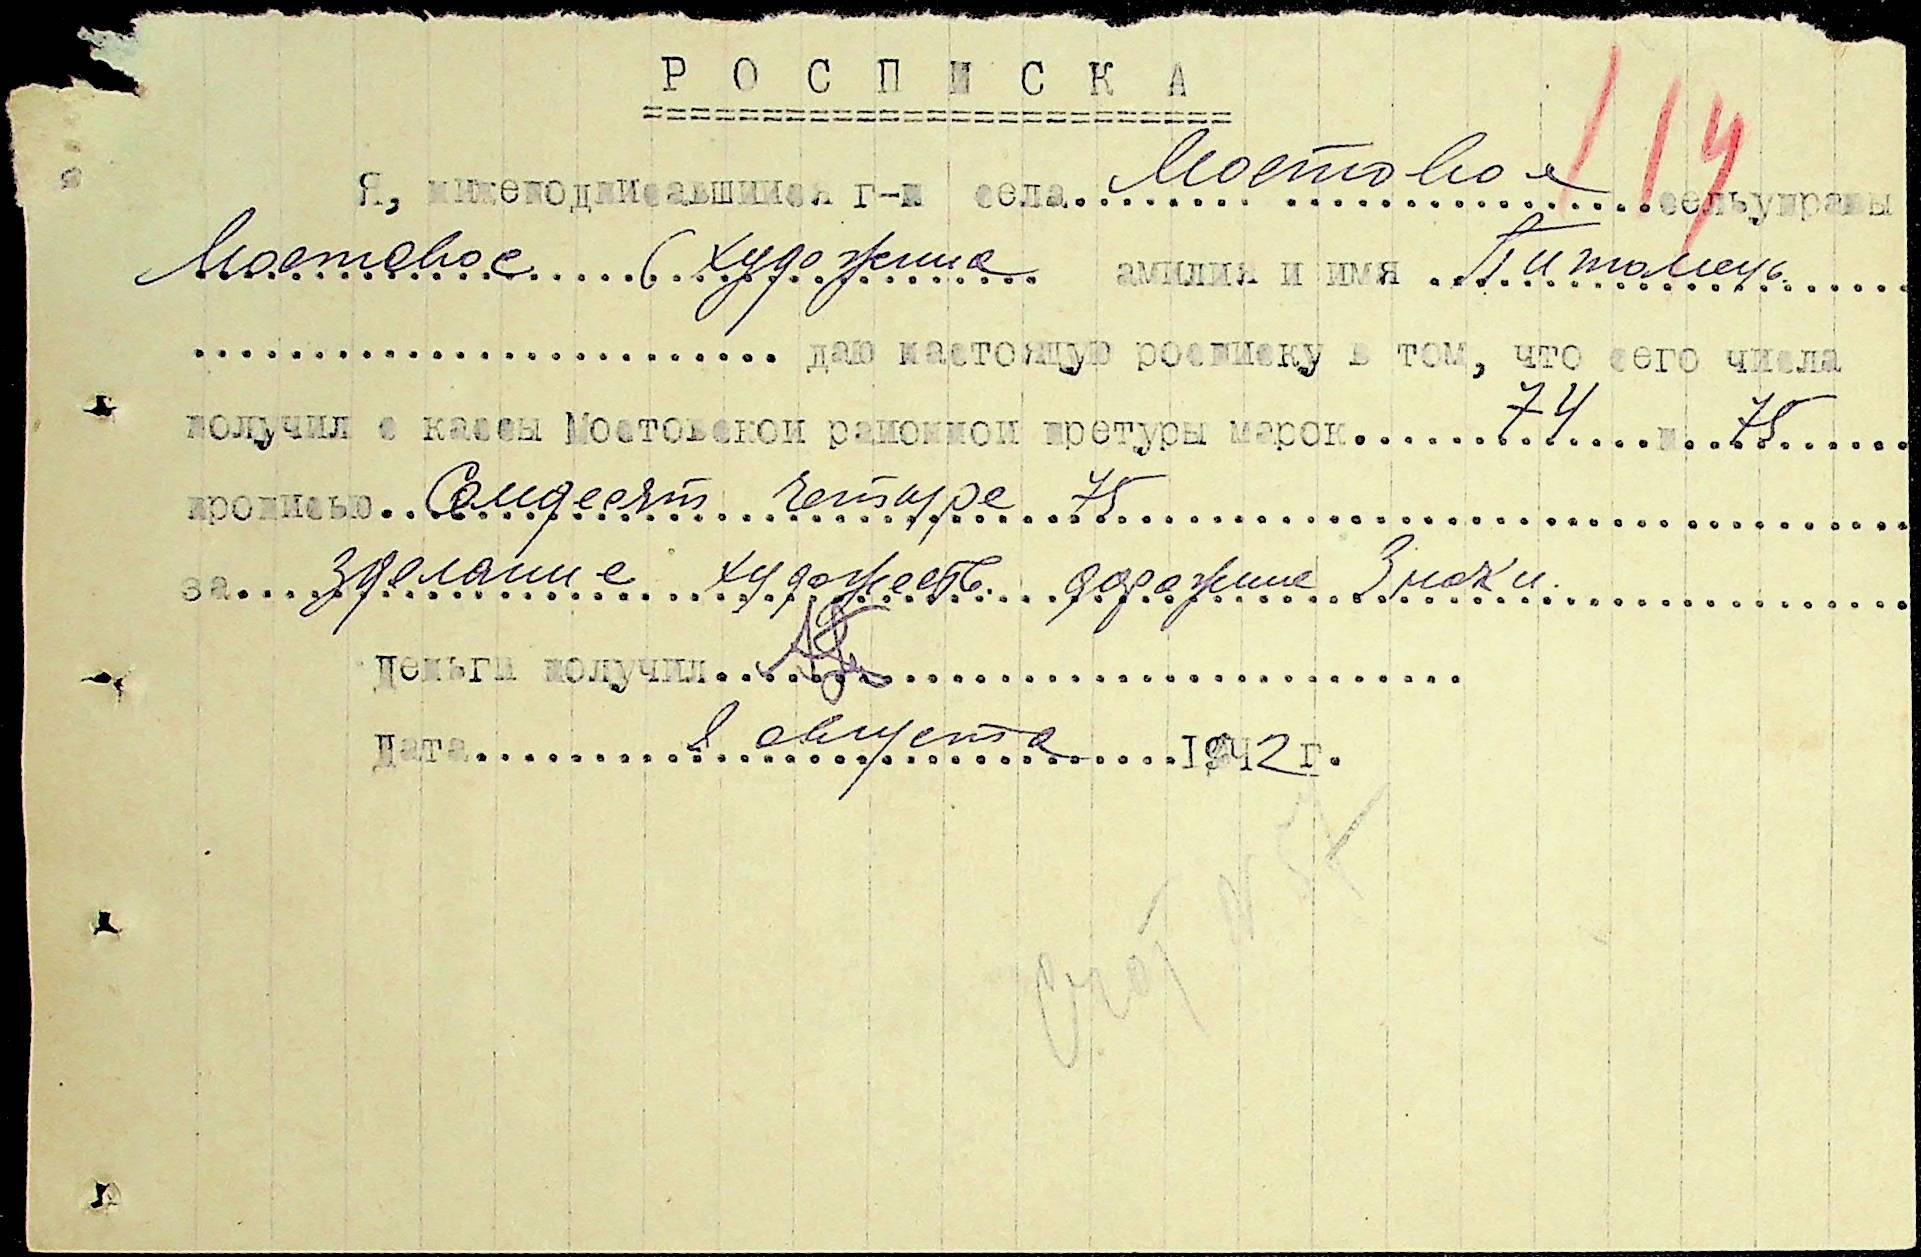 РОСПИСКА
114
Я, нижеподписавшийся г-н села Мостовое сельуправы
Мостовое (художние амилия и имя
даю настоящую росписку в том, что сего числа
получил с кассы Мостовской районной претуры марок 74 п. 75
прописью Семдесят четыре 75
за зделание художеств. дорожние Знаки.
Деньги получил
Дата 8 августа 1942 г.
Счот N 57